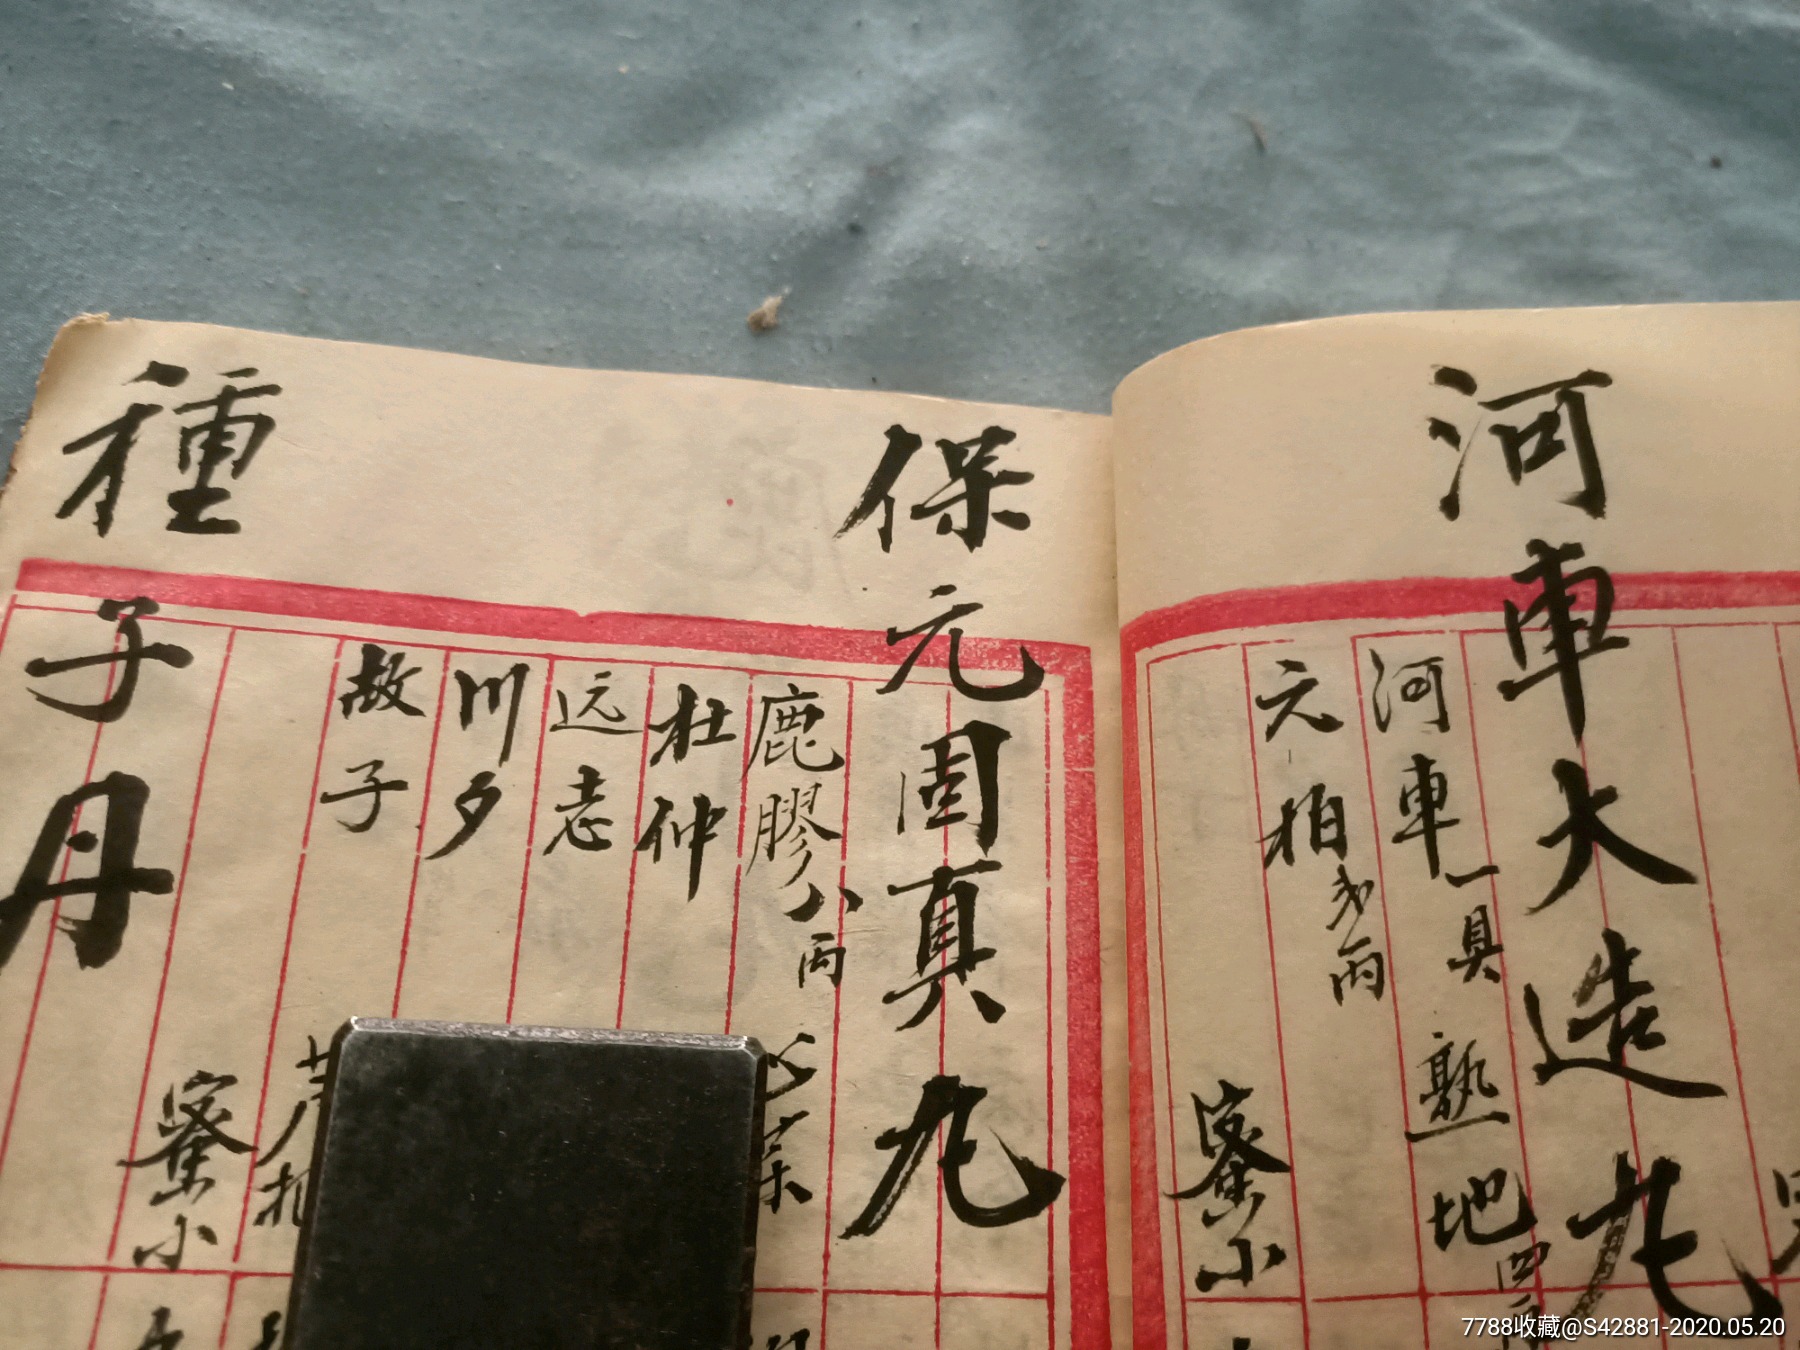 河車大造丸
河車一具 熟地四
元柏弍兩
蜜小
保元固真丸
鹿膠八兩
杜仲
远志
川夕
故子
蜜小
種子丹
7788收藏@S42881-2020.05.20